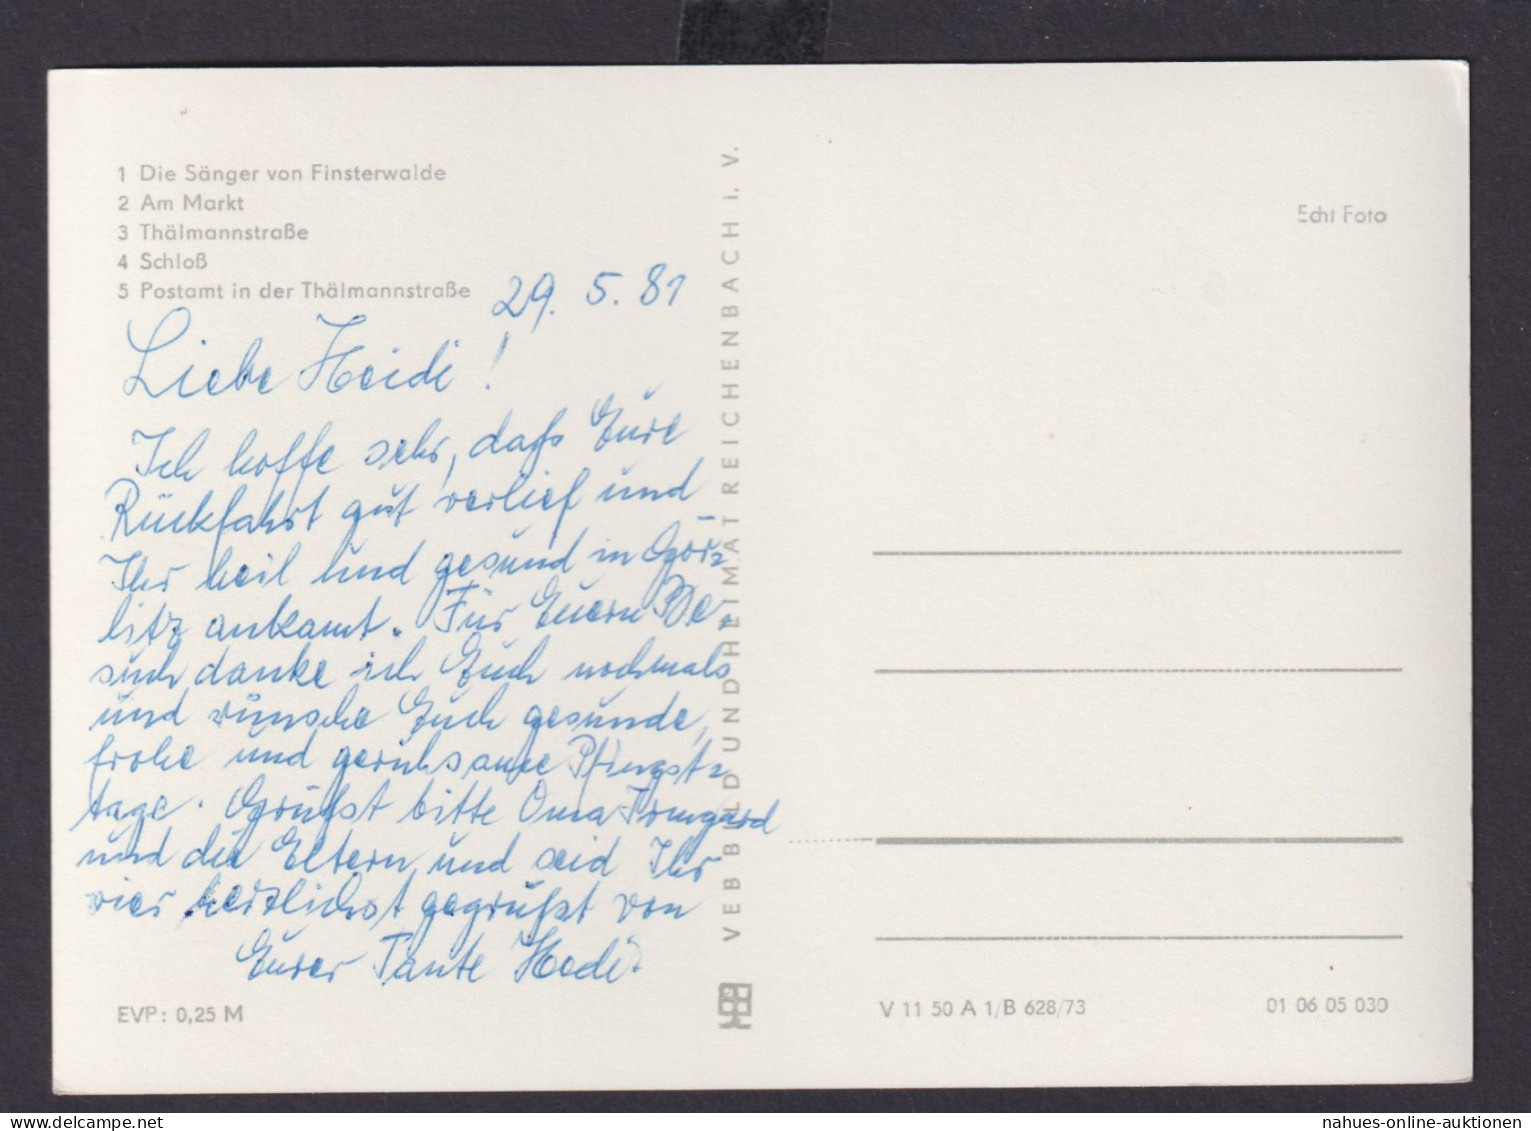 1 Die Sänger von Finsterwalde
2 Am Markt
3 Thälmannstraße
4 Schloß
5 Postamt in der Thälmannstraße
29. 5. 81
Liebe Heidi!
Ich hoffe sehr, daß Eure
Rückfahrt gut verlief und
Ihr heil und gesund in Gör=
litz ankamt. Für Euern Be=
such danke ich Euch nochmals
und wünsche Euch gesunde,
frohe und geruhsame Pfingst=
tage. Grüßt bitte Oma Irmgard
und die Eltern und seid Ihr
vier herzlichst gegrüßt von
Eurer Tante Hedi.
EVP: 0,25 M
VEB BILD UND HEIMAT REICHENBACH I. V.
Echt Foto
V 11 50 A 1/B 628/73
01 06 05 030
nahues-online-auktionen